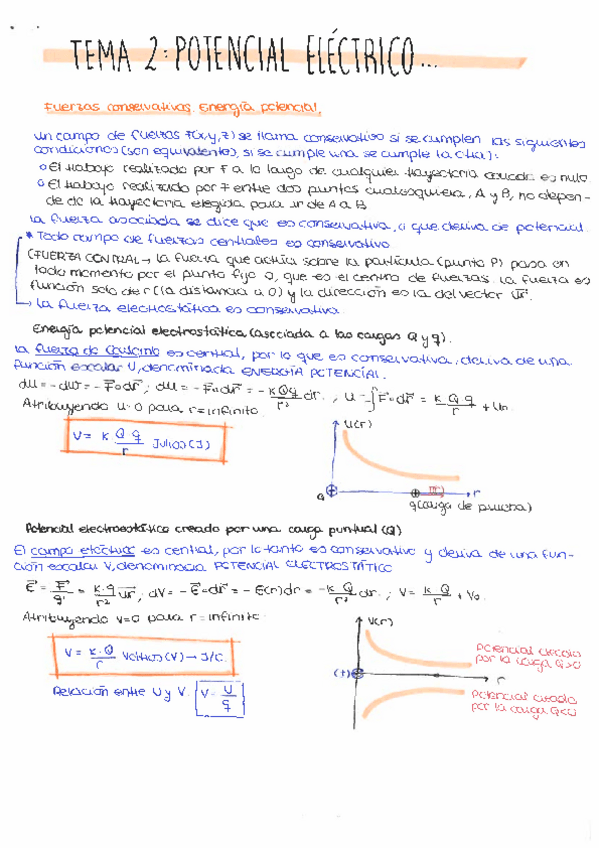 TEMA 2: POTENCIAL ELÉCTRICO...
Fuerzas conservativas. Energía potencial.
Un campo de fuerzas F(x,y,z) se llama conservativo si se cumplen las siguientes
condiciones (son equivalentes, si se cumple una se cumple la otra):
o El trabajo realizado por F a lo largo de cualquier trayectoria cerrada es nulo
o El trabajo realizado por F entre dos puntos cualesquiera, A y B, no depen-
de de la trayectoria elegida para ir de A a B
La fuerza asociada se dice que es conservativa, o que deriva de potencial.
* Todo campo de fuerzas centrales es conservativo
(FUERZA CENTRAL → la fuerza que actúa sobre la partícula (punto P) pasa en
todo momento por el punto fijo O, que es el centro de fuerzas. La fuerza es
función solo de r (la distancia a O) y la dirección es la del vector ur.
→ La fuerza electrostática es conservativa.
Energía potencial electrostática (asociada a las cargas Q y q).
La fuerza de Coulomb es central, por lo que es conservativa, deriva de una
función escalar U, denominada ENERGÍA POTENCIAL.
dU = -dW = -F∘dr ; dU = -F∘dr = -K Qq/r² dr ; U = -∫F∘dr = K Q q/r + U₀
Atribuyendo U=0 para r=infinito.
V = K Q q/r Julios (J)
U(r)
Q
r
q (carga de prueba)
Potencial electroestático creado por una carga puntual (Q)
El campo eléctrico es central, por lo tanto es conservativo y deriva de una fun-
ción escalar V, denominada POTENCIAL ELECTROSTÁTICO
E = F/q' = K·q/r² ur ; dV = -E∘dr = -E(r)dr = -K Q/r² dr ; V = K Q/r + V₀
Atribuyendo V=0 para r=infinito.
V = K·Q/r Voltios (V) → J/C.
Relación entre U y V. V = U/q
V(r)
Potencial creado
por la carga Q>0
(+)
r
Potencial creado
por la carga Q<0